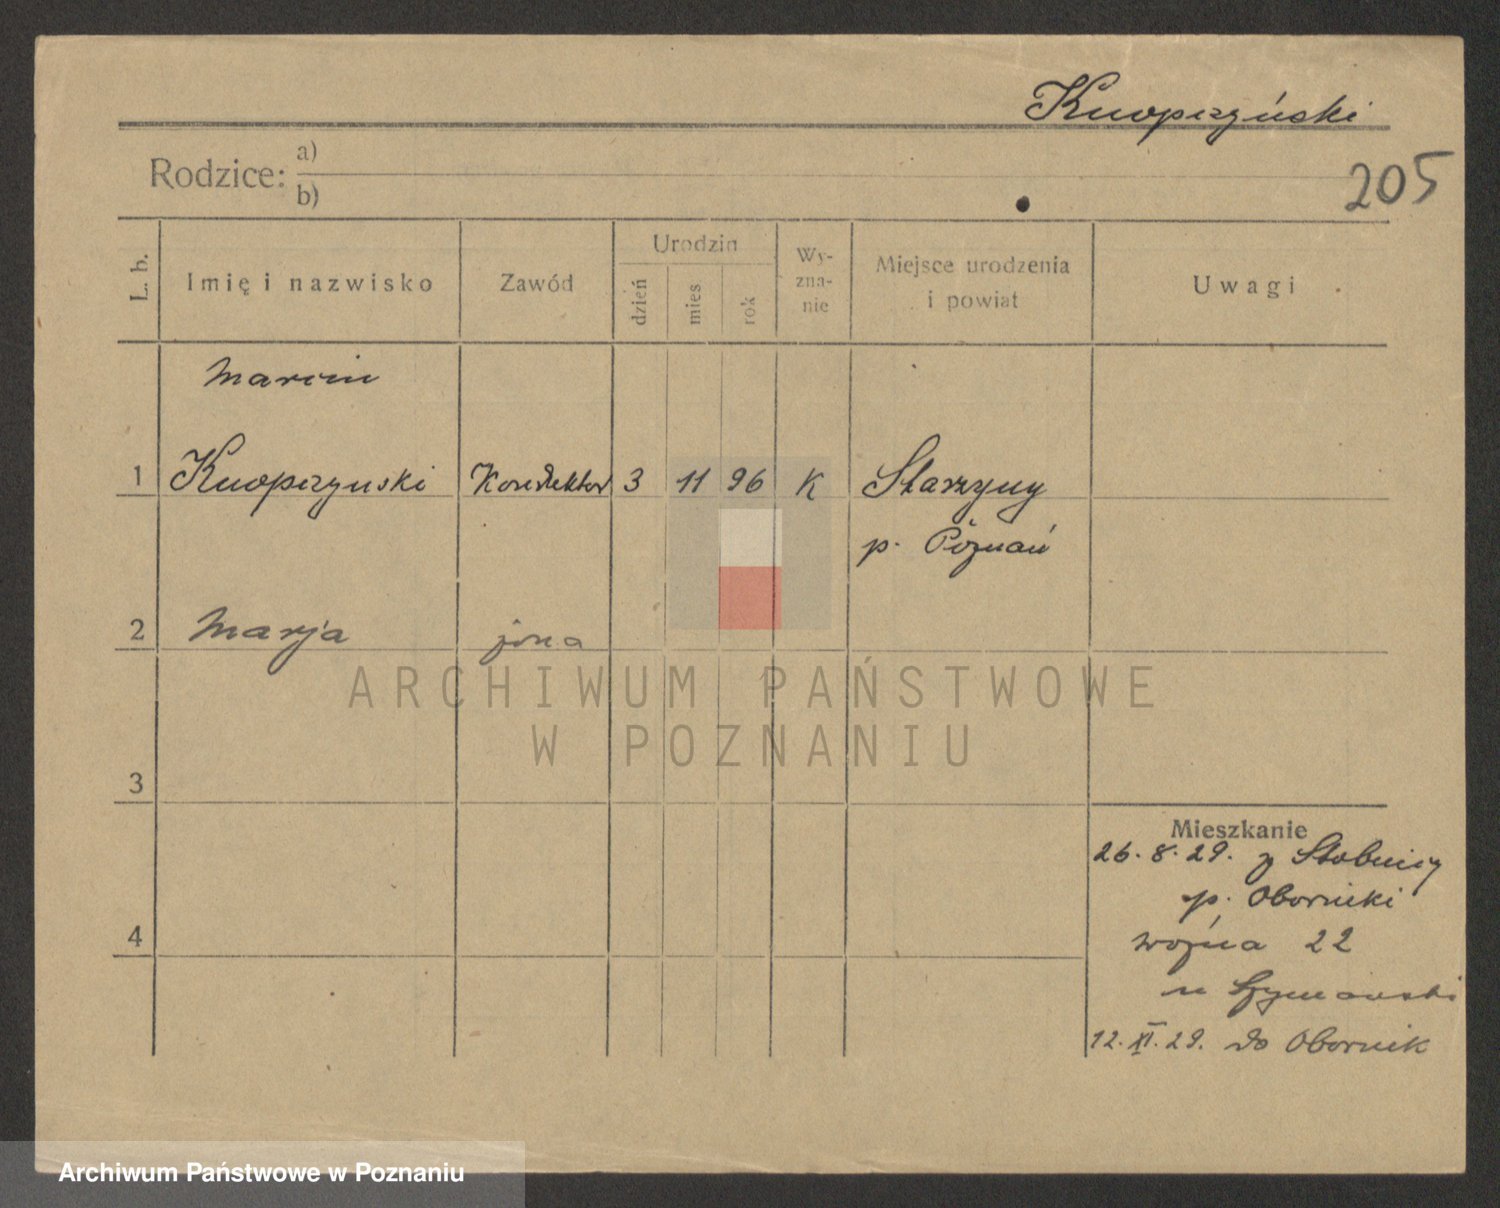 Knopczyński
205
Rodzice:
a)
b)
L. b.
Imię i nazwisko
Zawód
Urodzin
dzień
mies
rok
Wy-
zna-
nie
Miejsce urodzenia
i powiat
Uwagi
Marcin
1 Knopczynski 3 11 96 K
p. Poznań
2 Marja
ARCHIWUM PAŃSTWOWE
W POZNANIU
3
4
Mieszkanie
26. 8. 29. z Stobnicy
p. Oborniki
22
12. XI. 29. do Obornik
Archiwum Państwowe w Poznaniu